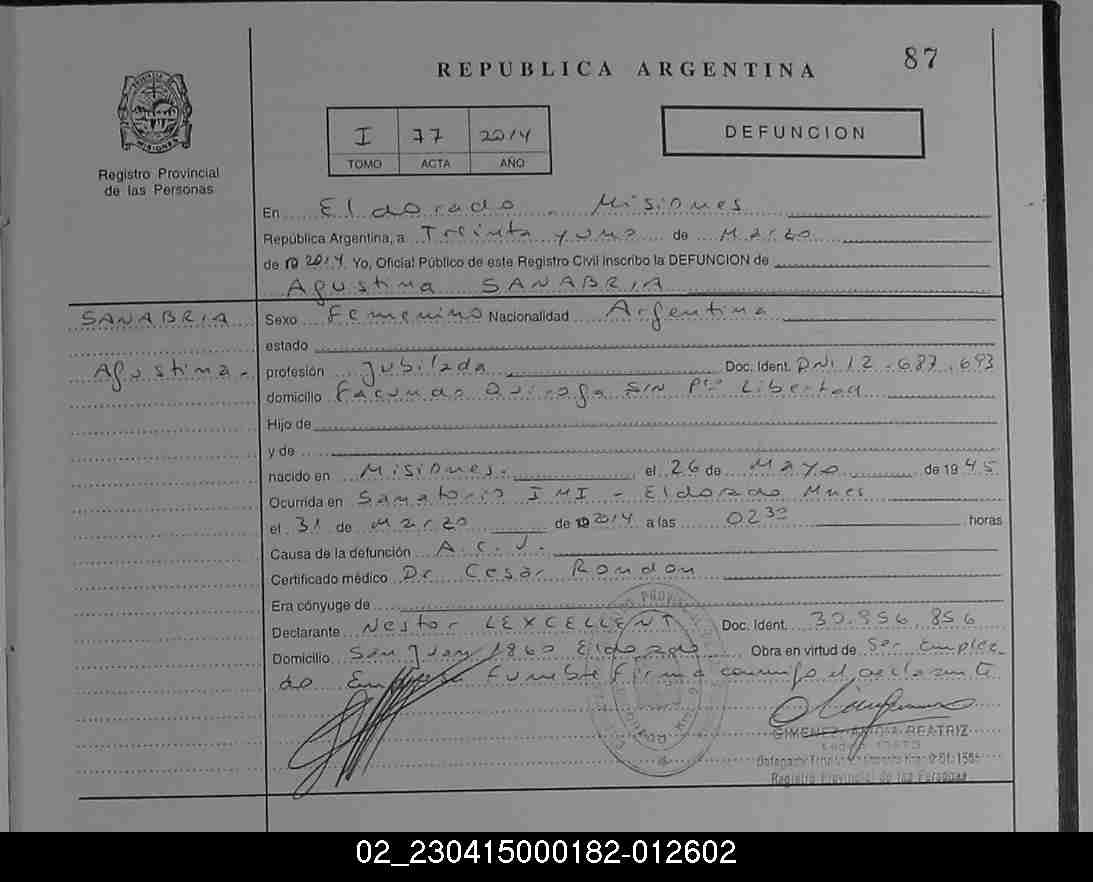 87
REPUBLICA ARGENTINA
MISIONES
Registro Provincial
de las Personas
I 77 2014
TOMO ACTA AÑO
DEFUNCION
En Eldorado - Misiones
República Argentina, a Treinta y uno de Marzo
de 19 2014 Yo, Oficial Público de este Registro Civil inscribo la DEFUNCION de
Agustina SANABRIA
SANABRIA
Agustina -
Sexo Femenino Nacionalidad Argentina
estado
profesión Jubilada Doc. Ident. DNI 12.687.693
domicilio Facundo Quiroga S/N Pto Libertad
Hijo de
y de
nacido en Misiones. el 26 de Mayo de 1945
Ocurrida en Sanatorio IMI - Eldorado Mnes
el 31 de Marzo de 19 2014 a las 02 30 horas
Causa de la defunción A.C.V.
Certificado médico Dr Cesar Rondon
Era cónyuge de
Declarante Nestor LEXCELLENT Doc. Ident. 30.956.856
Domicilio San Juan 1860 Eldorado Obra en virtud de Ser emplea
do Empresa Funebre Firma conmigo el declarante
GIMENEZ BEATRIZ
Registro Provincial de las Personas
02_230415000182-012602